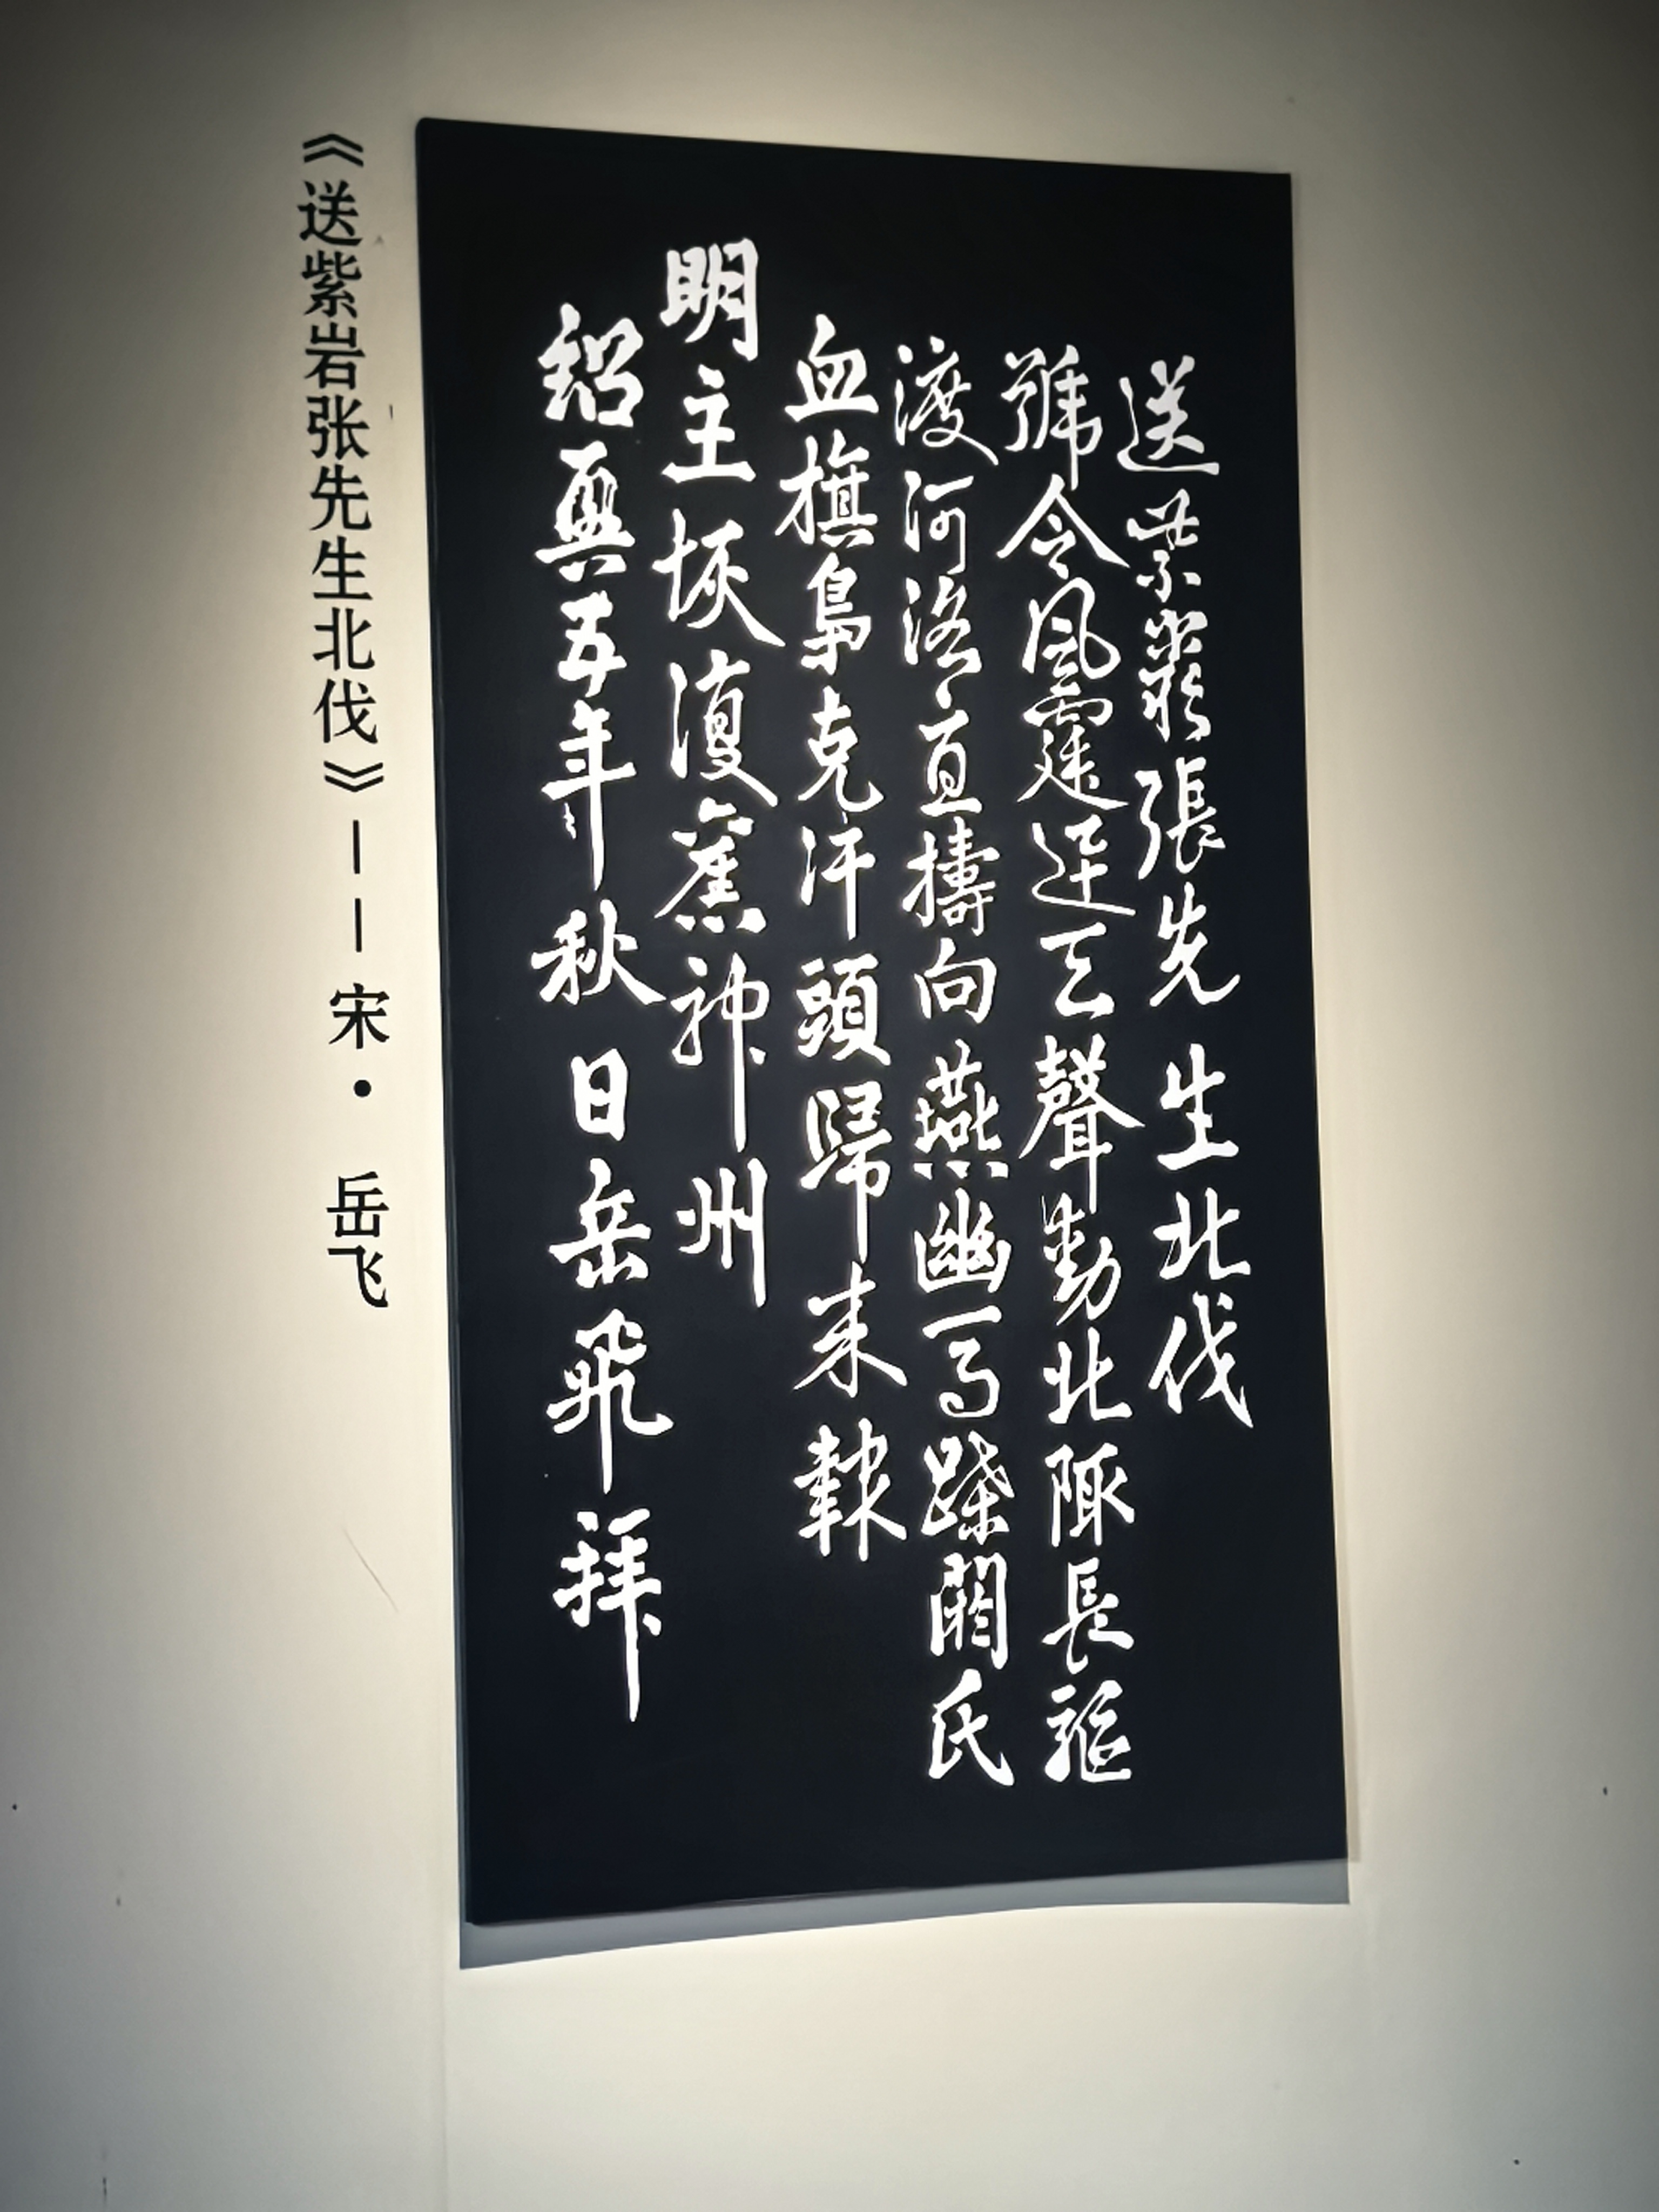 送紫巖張先生北伐
號令風霆迅天聲動北陬長驅
渡河洛直擣向燕幽馬蹀閼氏
血旗梟克汗頭歸來報
明主恢復舊神州
紹興五年秋日岳飛拜
《送紫岩张先生北伐》——宋·岳飞